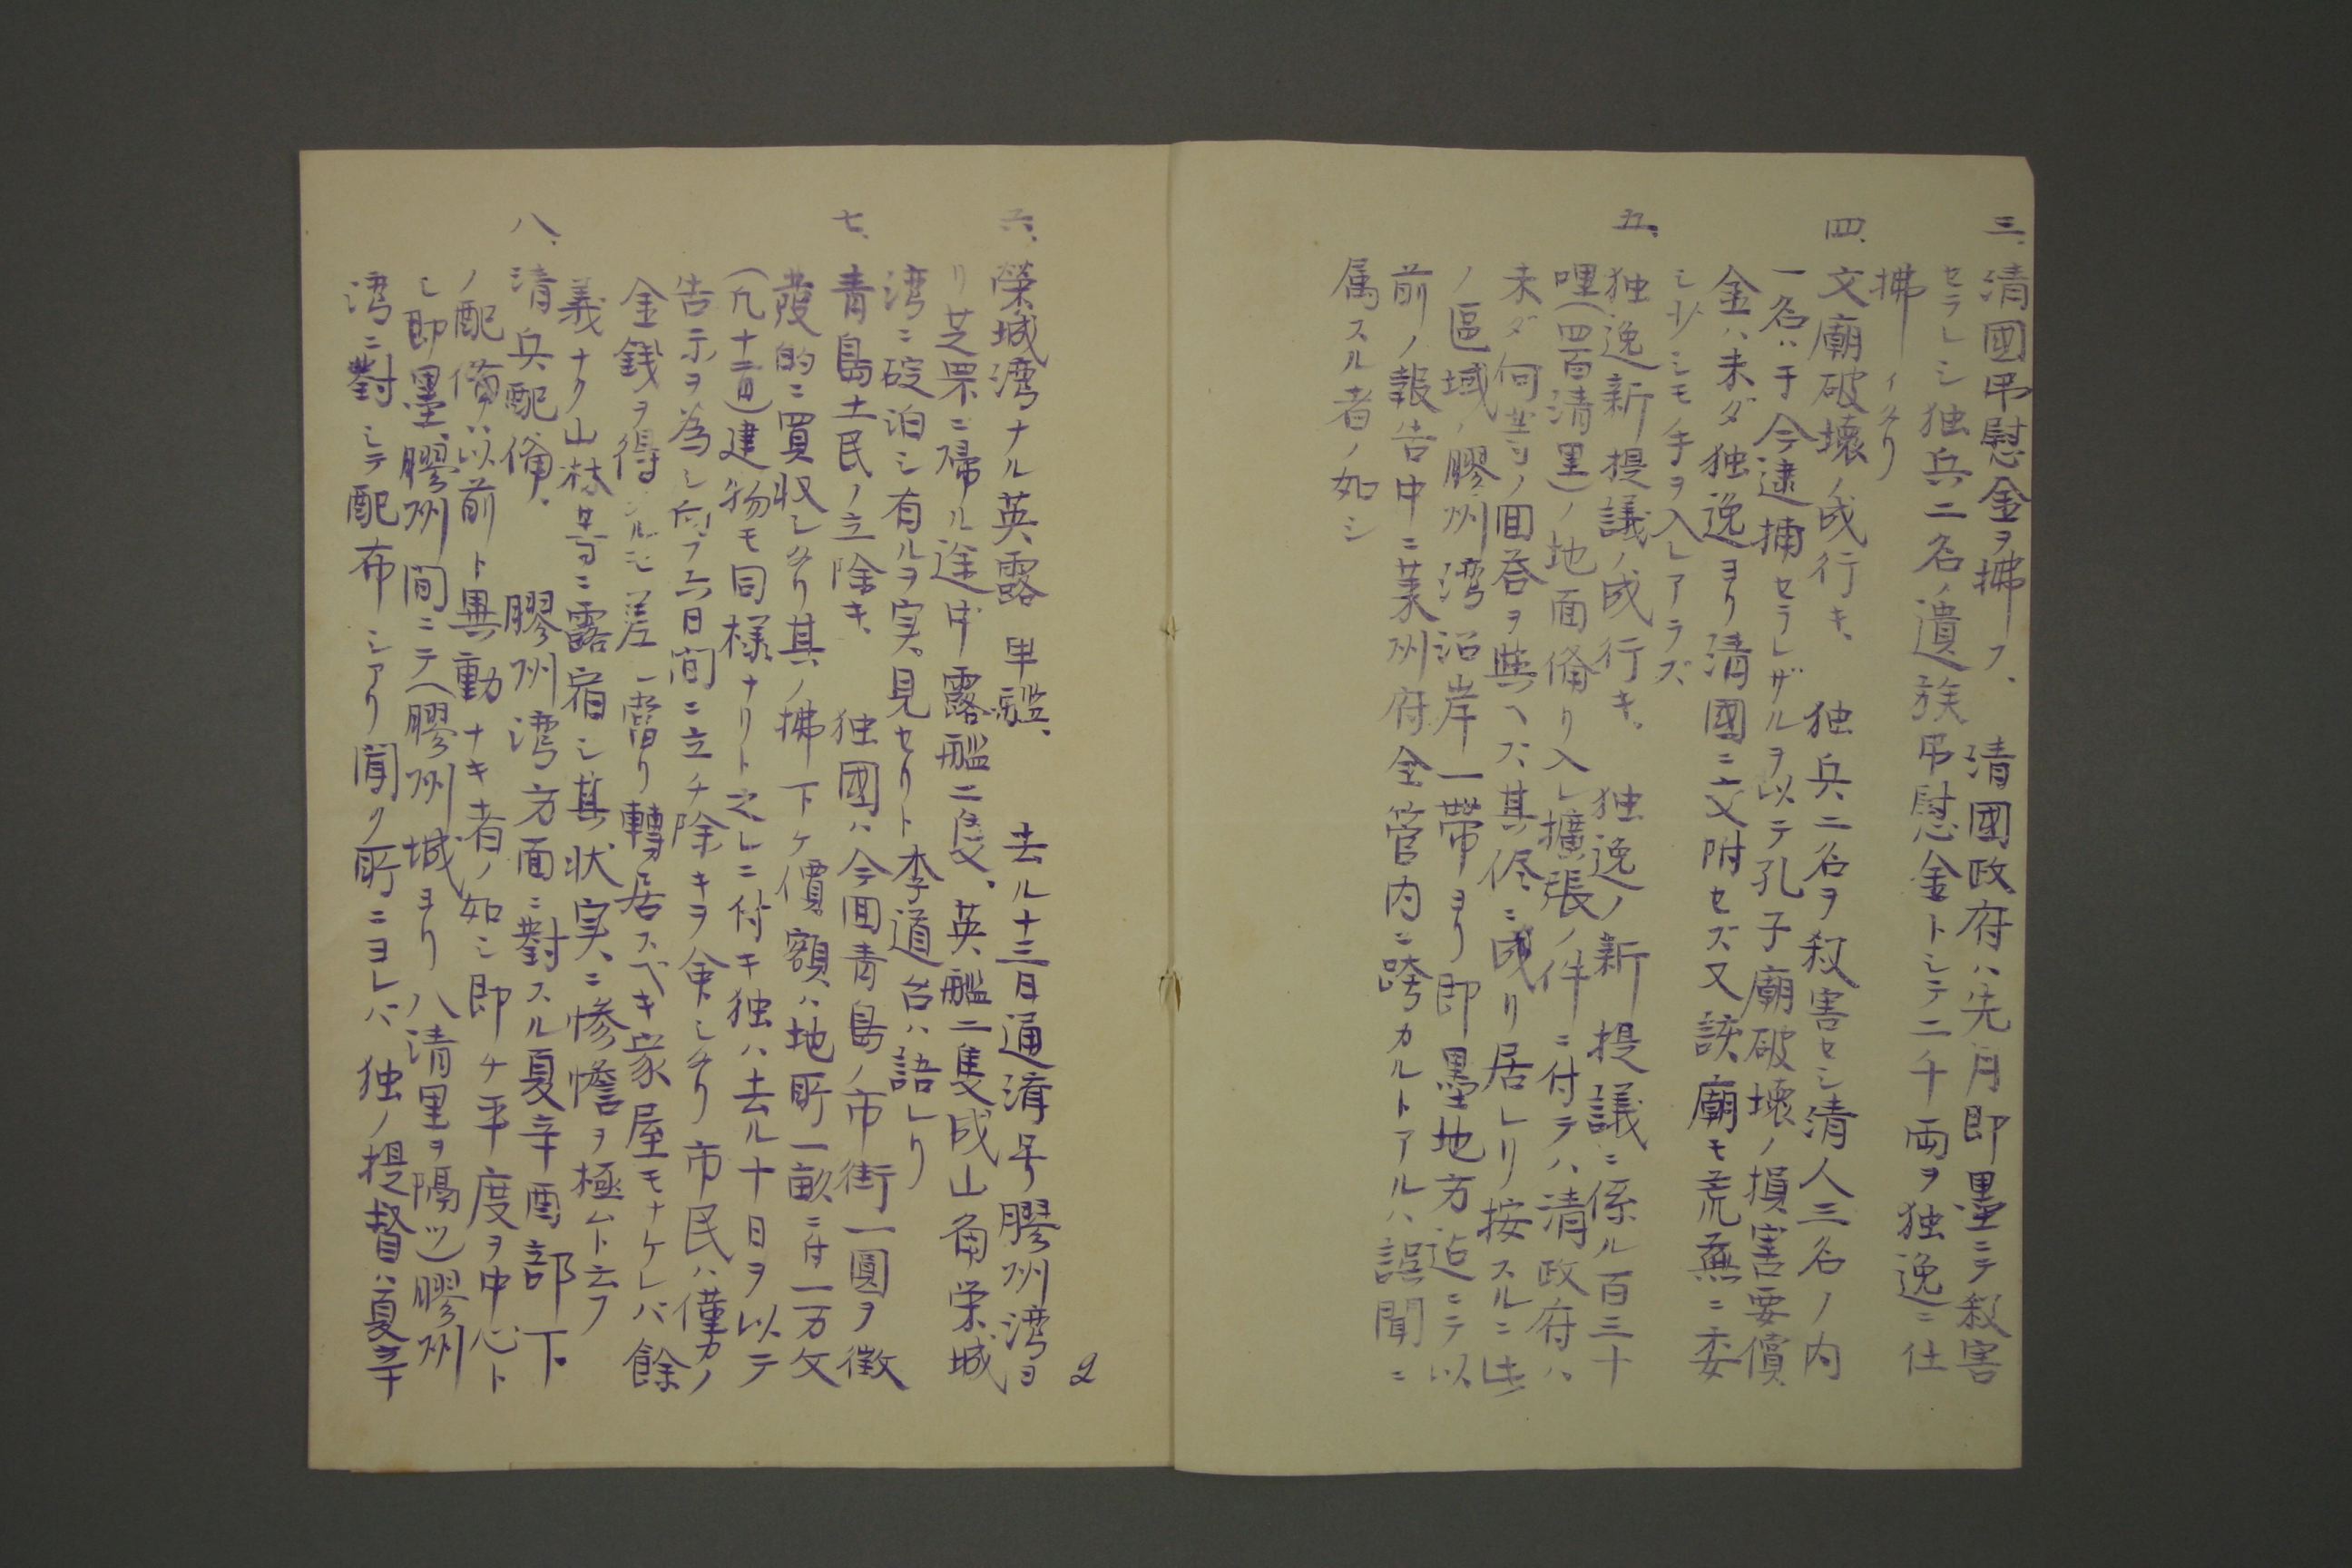 三、清國弔慰金ヲ拂フ、 清國政府ハ先月即墨ニテ殺害
セラレシ独兵二名ノ遺族弔慰金トシテ二千両ヲ独逸ニ仕
拂イタリ
四、文廟破壊ノ成行キ、 独兵二名ヲ殺害セシ清人三名ノ内
一名ハ于今逮捕セラレザルヲ以テ孔子廟破壊ノ損害要償
金ハ未ダ独逸ヨリ清國ニ交附セズ又該廟モ荒蕪ニ委
シ少シモ手ヲ入レアラズ
五、独逸新提議ノ成行キ、 独逸ノ新提議ニ係ル百三十
哩(四百清里)ノ地面借リ入レ擴張ノ件ニ付テハ清政府ハ
未ダ何等ノ回答ヲ與ヘズ其侭ニ成リ居レリ按スルニ此
ノ區域ハ膠州湾沿岸一帶ヨリ即墨地方迄ニテ以
前ノ報告中ニ莱州府全管内ニ跨カルトアルハ誤聞ニ
属スル者ノ如シ
2
六、榮城湾ナル英露軍艦、 去ル十三日通済号膠州湾ヨ
リ芝罘ニ帰ル途中露艦二隻、英艦二隻成山角栄城
湾ニ碇泊シ有ルヲ実見セリト李道台ハ語レリ
七、青島土民ノ立除キ、 独國ハ今回青島ノ市街一圓ヲ徴
發的ニ買収シタリ其ノ拂下ケ價額ハ地所一畝ニ付一万文
(凡十二)建物モ同様ナリト之レニ付キ独ハ去ル十日ヲ以テ
告示ヲ為シ向フ六日間ニ立チ除キヲ命シタリ市民ハ僅カノ
金銭ヲ得ルモ差當リ轉居スベキ家屋モナケレバ餘
義ナク山林等ニ露宿シ其状実ニ惨憺ヲ極ムト云フ
八、清兵配備、 膠州湾方面ニ對スル夏辛酉部下
ノ配備ハ以前ト異動ナキ者ノ如シ即チ平度ヲ中心ト
シ即墨、膠州間ニテ(膠州城ヨリ八清里ヲ隔ツ)膠州
湾ニ對シテ配布シアリ聞ク所ニヨレバ独ノ提督ハ夏辛